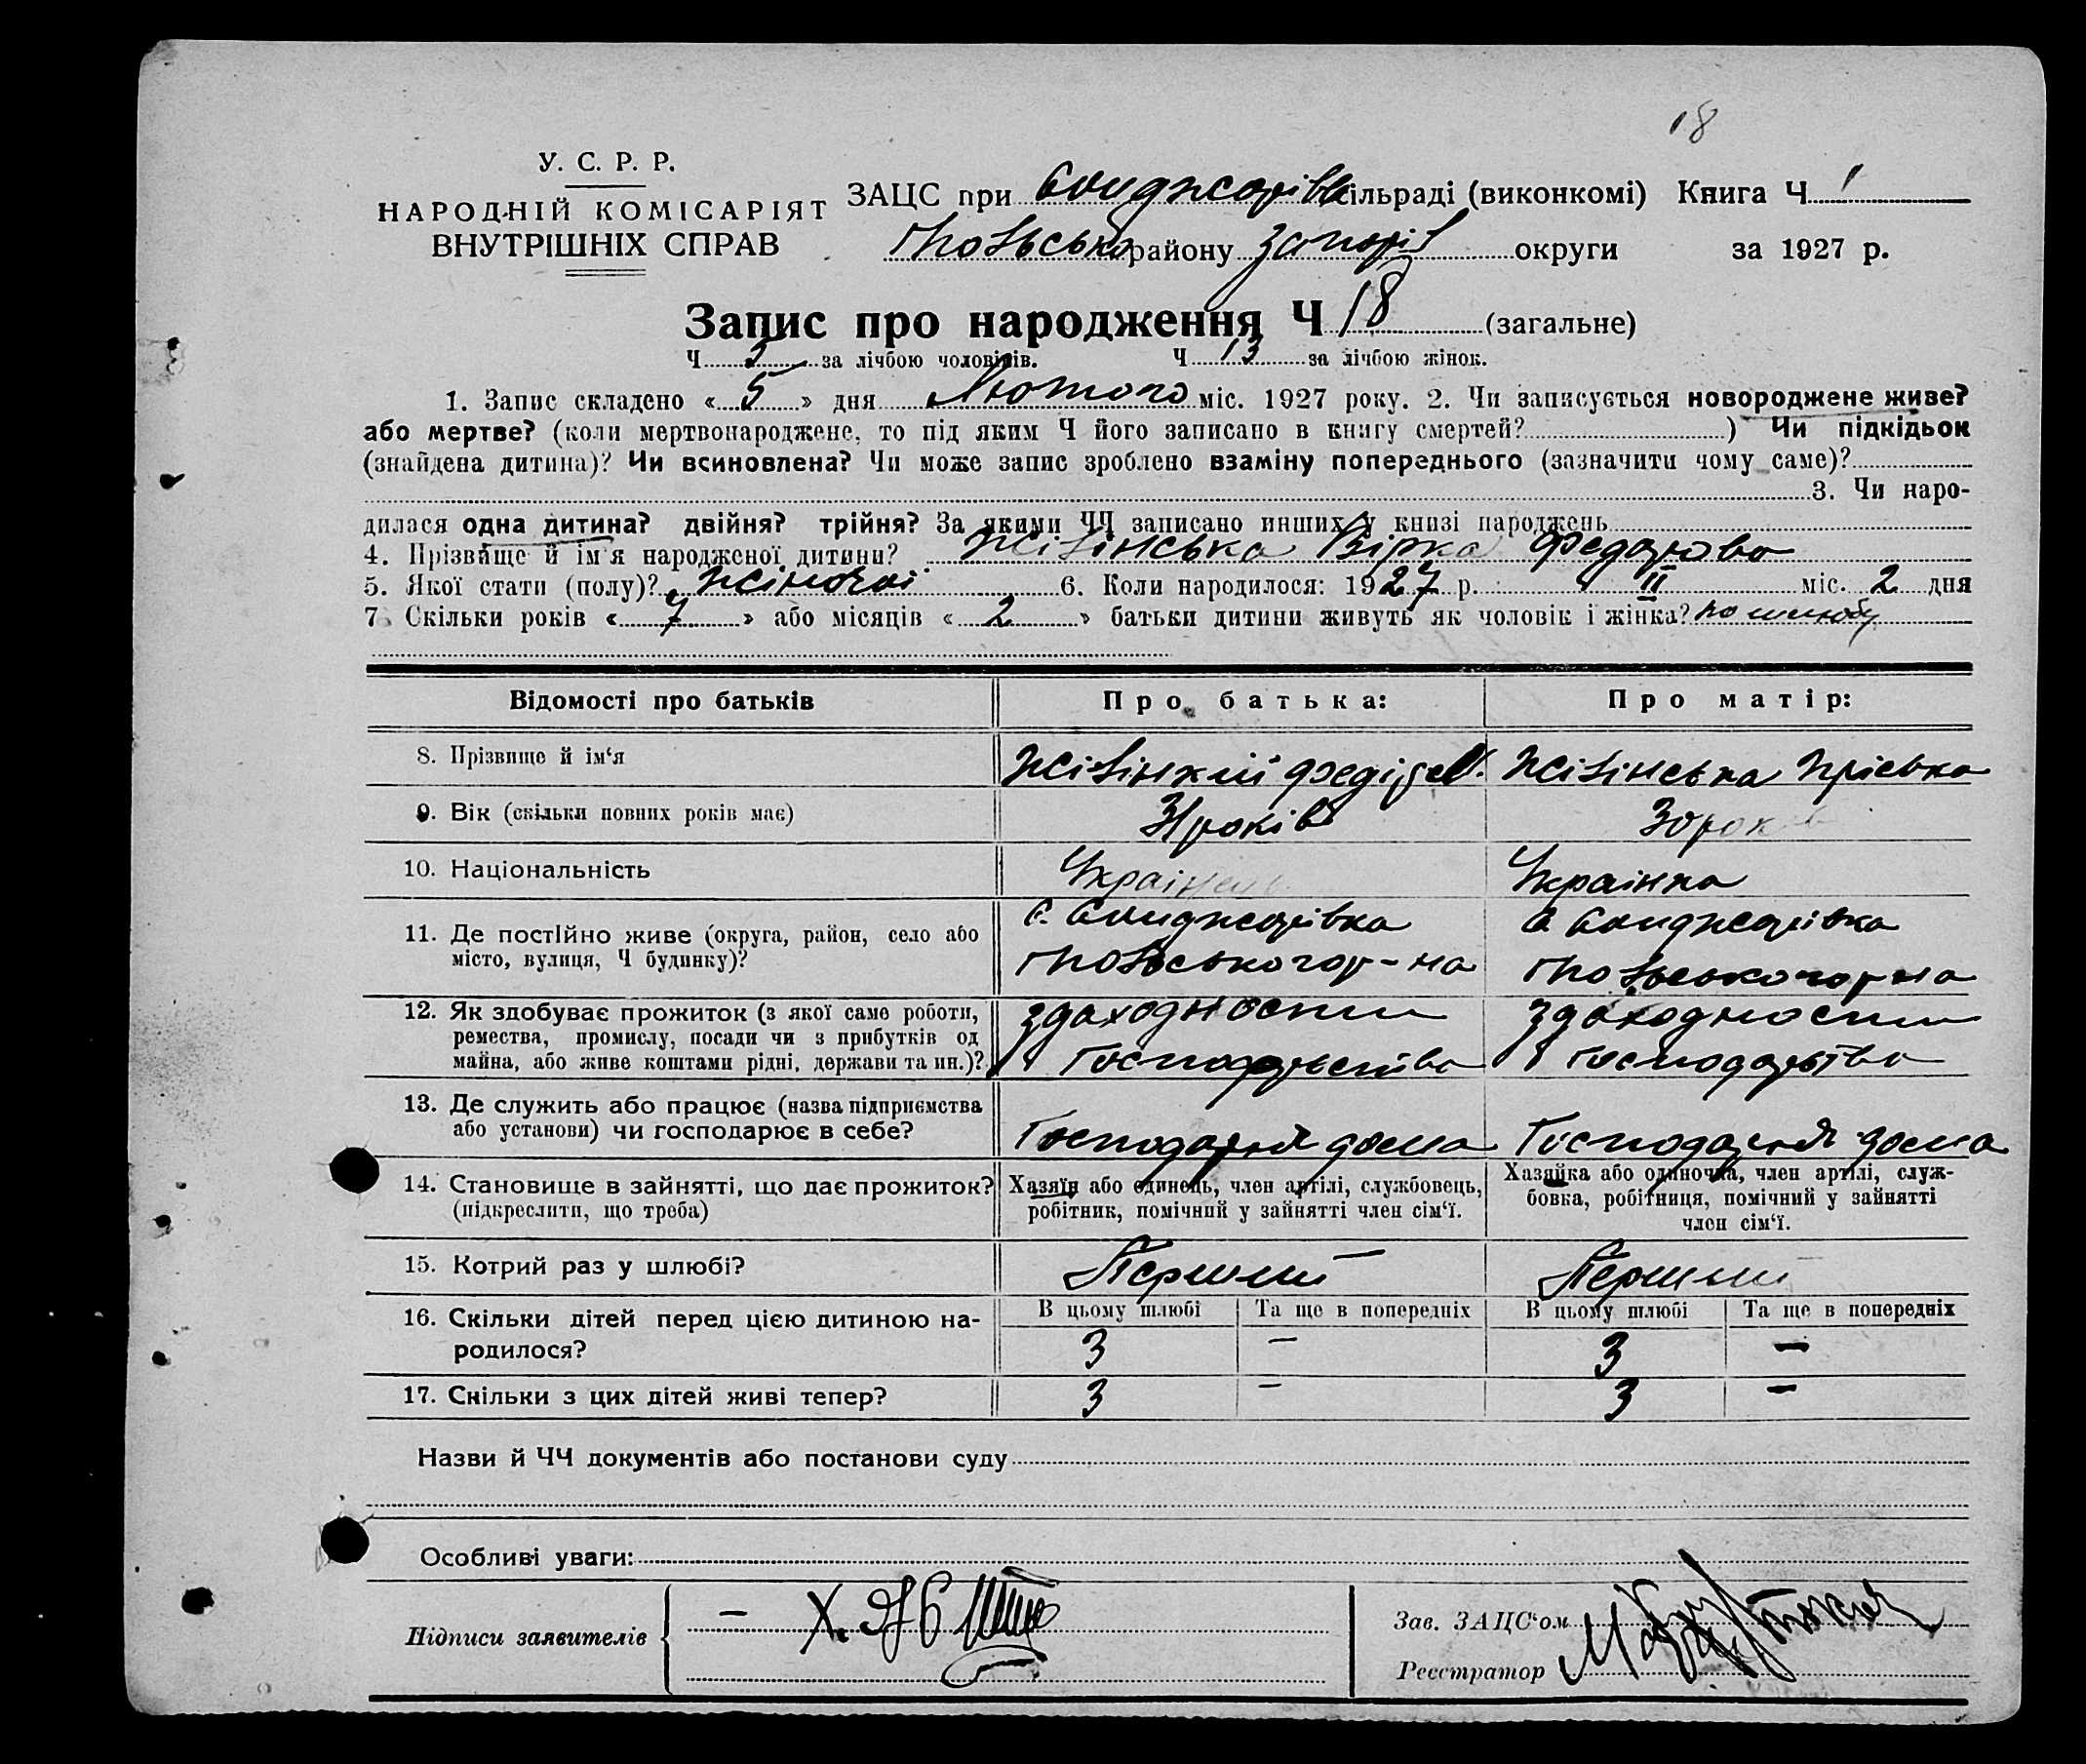 18
У. С. Р. Р.
НАРОДНІЙ КОМІСАРІЯТ
ВНУТРІШНІХ СПРАВ
ЗАЦС при сільраді (виконкомі) Книга Ч 1
району Запоріз округи за 1927 р.
Запис про народження Ч 18 (загальне)
Ч 5 за лічбою чоловіків. Ч 13 за лічбою жінок.
1. Запис складено « 5 » дня Лютого міс. 1927 року. 2. Чи записується новороджене живе?
або мертве? (коли мертвонароджене, то під яким Ч його записано в книгу смертей? ) Чи підкідьок
(знайдена дитина)? Чи всиновлена? Чи може запис зроблено взаміну попереднього (зазначити чому саме)?
3. Чи наро-
дилася одна дитина? двійня? трійня? За якими ЧЧ записано инших у книзі народжень
4. Прізвище й ім'я народженої дитини? Вірка Федорова
5. Якої стати (полу)? жіночої 6. Коли народилося: 1927 р. II міс. 2 дня
7. Скільки років « 7 » або місяців « 2 » батьки дитини живуть як чоловік і жінка? по шлюбу
Відомості про батьків
Про батька:
Про матір:
8. Прізвище й ім'я
Пріська
9. Вік (скільки повних років має)
31 років
30 років
10. Національність
Українець
Українка
11. Де постійно живе (округа, район, село або
місто, вулиця, Ч будинку)?
12. Як здобуває прожиток (з якої саме роботи,
ремества, промислу, посади чи з прибутків од
майна, або живе коштами рідні, держави та ин.)?
здоходности
Господарства
здоходности
Господарства
13. Де служить або працює (назва підприємства
або установи) чи господарює в себе?
дома
дома
14. Становище в зайнятті, що дає прожиток?
(підкреслити, що треба)
Хазяїн або одинець, член артілі, службовець,
робітник, помічний у зайнятті член сім'ї.
Хазяйка або одиночка, член артілі, служ-
бовка, робітниця, помічний у зайнятті
член сім'ї.
15. Котрий раз у шлюбі?
Перший
Перший
16. Скільки дітей перед цією дитиною на-
родилося?
В цьому шлюбі Та ще в попередніх
В цьому шлюбі Та ще в попередніх
3 –
3 –
17. Скільки з цих дітей живі тепер?
3 –
3 –
Назви й ЧЧ документів або постанови суду
Особливі уваги:
Підписи заявителів
Зав. ЗАЦС'ом
Реєстратор